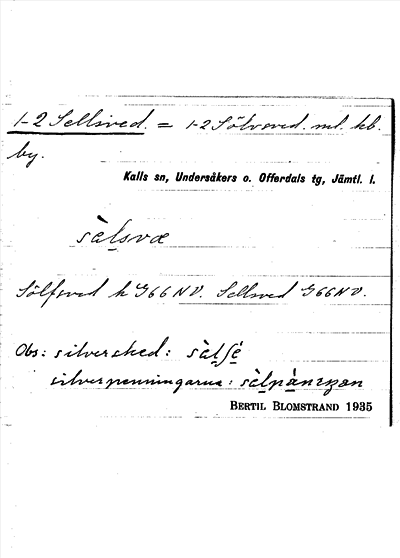 1-2 Sellsved. = 1-2 Sölvsved. ml. kb.
by.
Kalls sn, Undersåkers o. Offerdals tg, Jämtl. l.
sàlsvæ
Sölfsved k G66NV. Sellsved G66NV.
Obs: silversked: 
silverpenningarna:
BERTIL BLOMSTRAND 1935